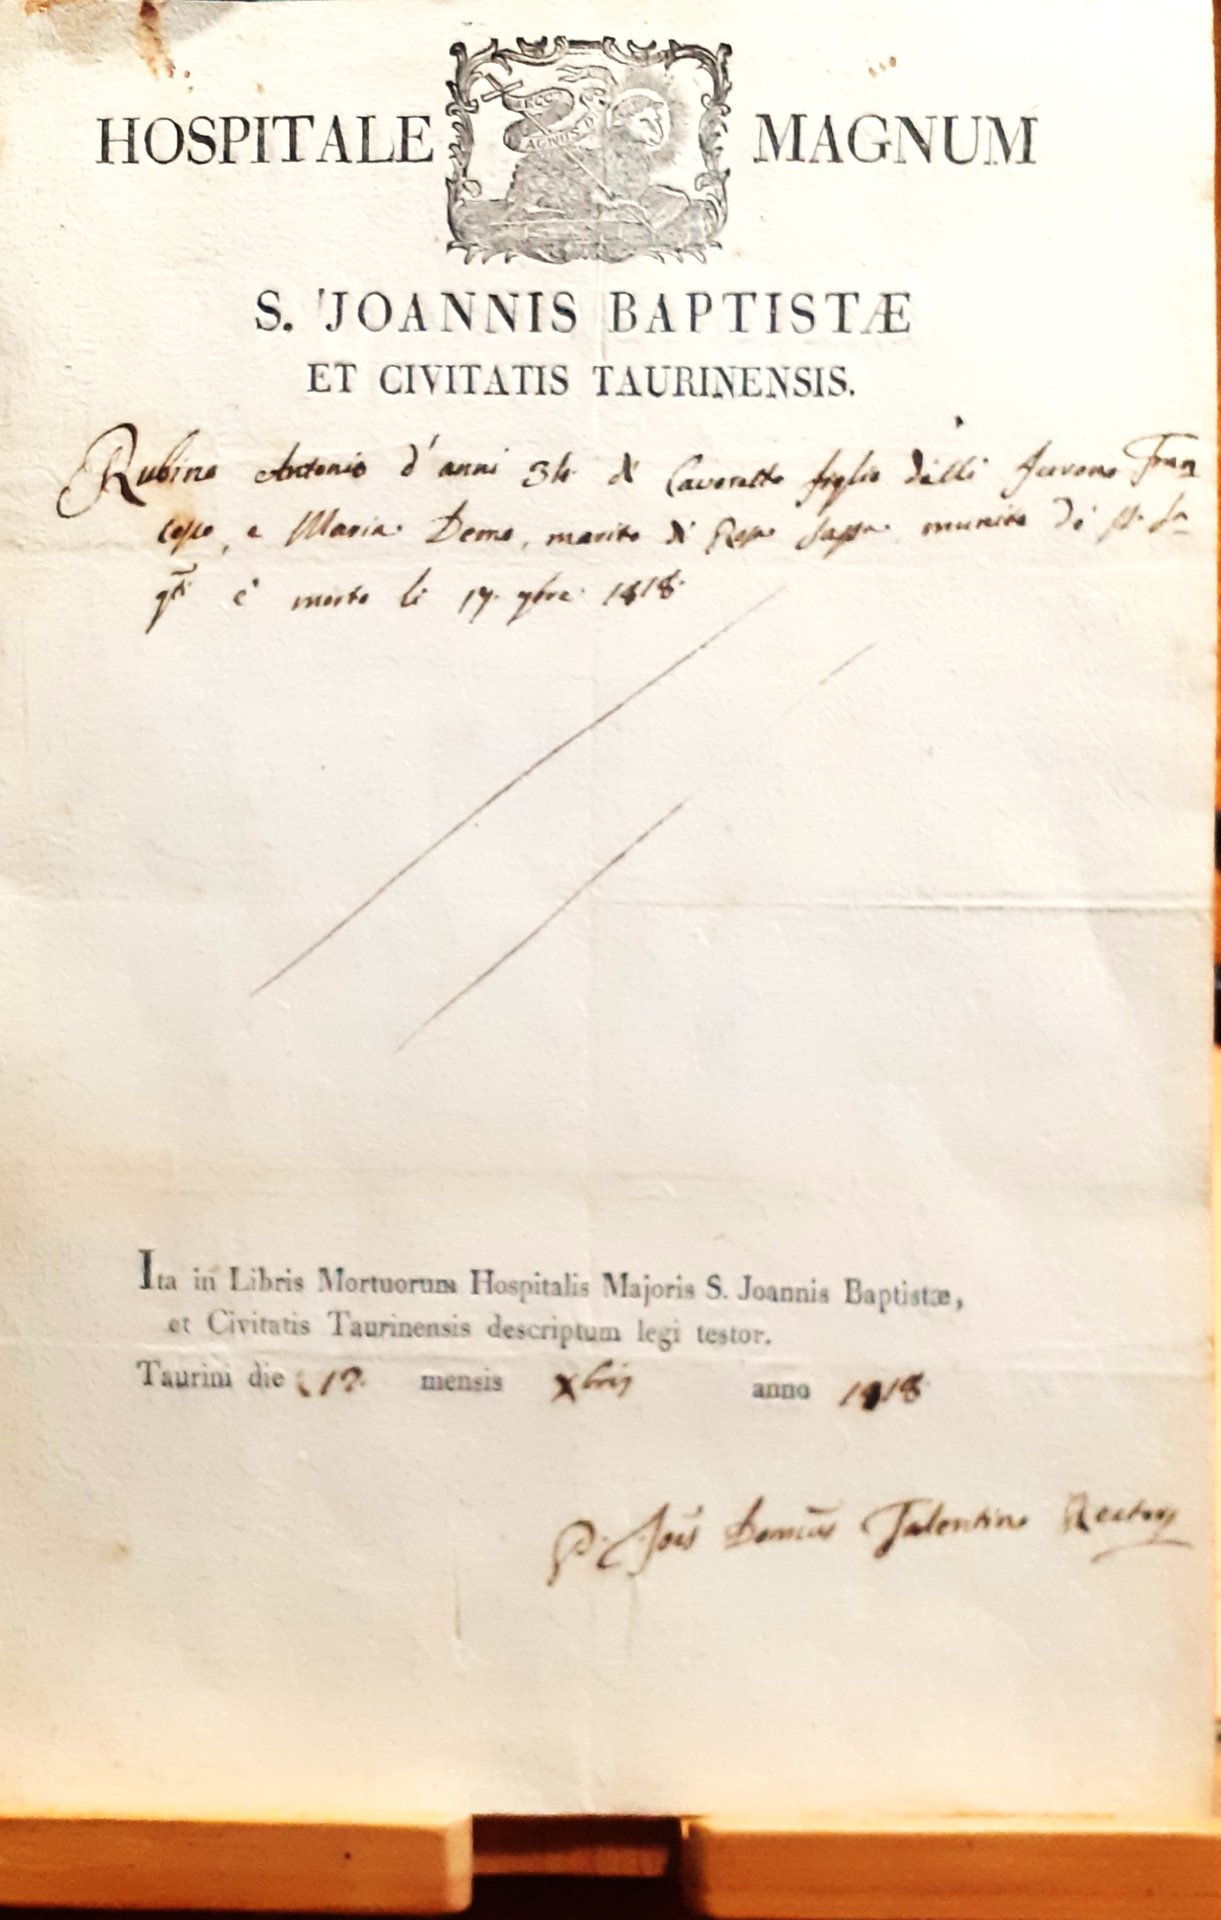 ECCE
AGNUS D
HOSPITALE MAGNUM
S. JOANNIS BAPTISTÆ
ET CIVITATIS TAURINENSIS.
Rubino Antonio d'anni 34 di Cavoretto figlio delli furono Fran
cesco, e Maria Demo, marito di Rosa munito de' SS. Sa
è morto li 17. 9bre 1818.
Ita in Libris Mortuorum Hospitalis Majoris S. Joannis Baptistæ,
et Civitatis Taurinensis descriptum legi testor.
Taurini die mensis Xbris anno 1818
P. Joēs Domcūs Talentino Rector